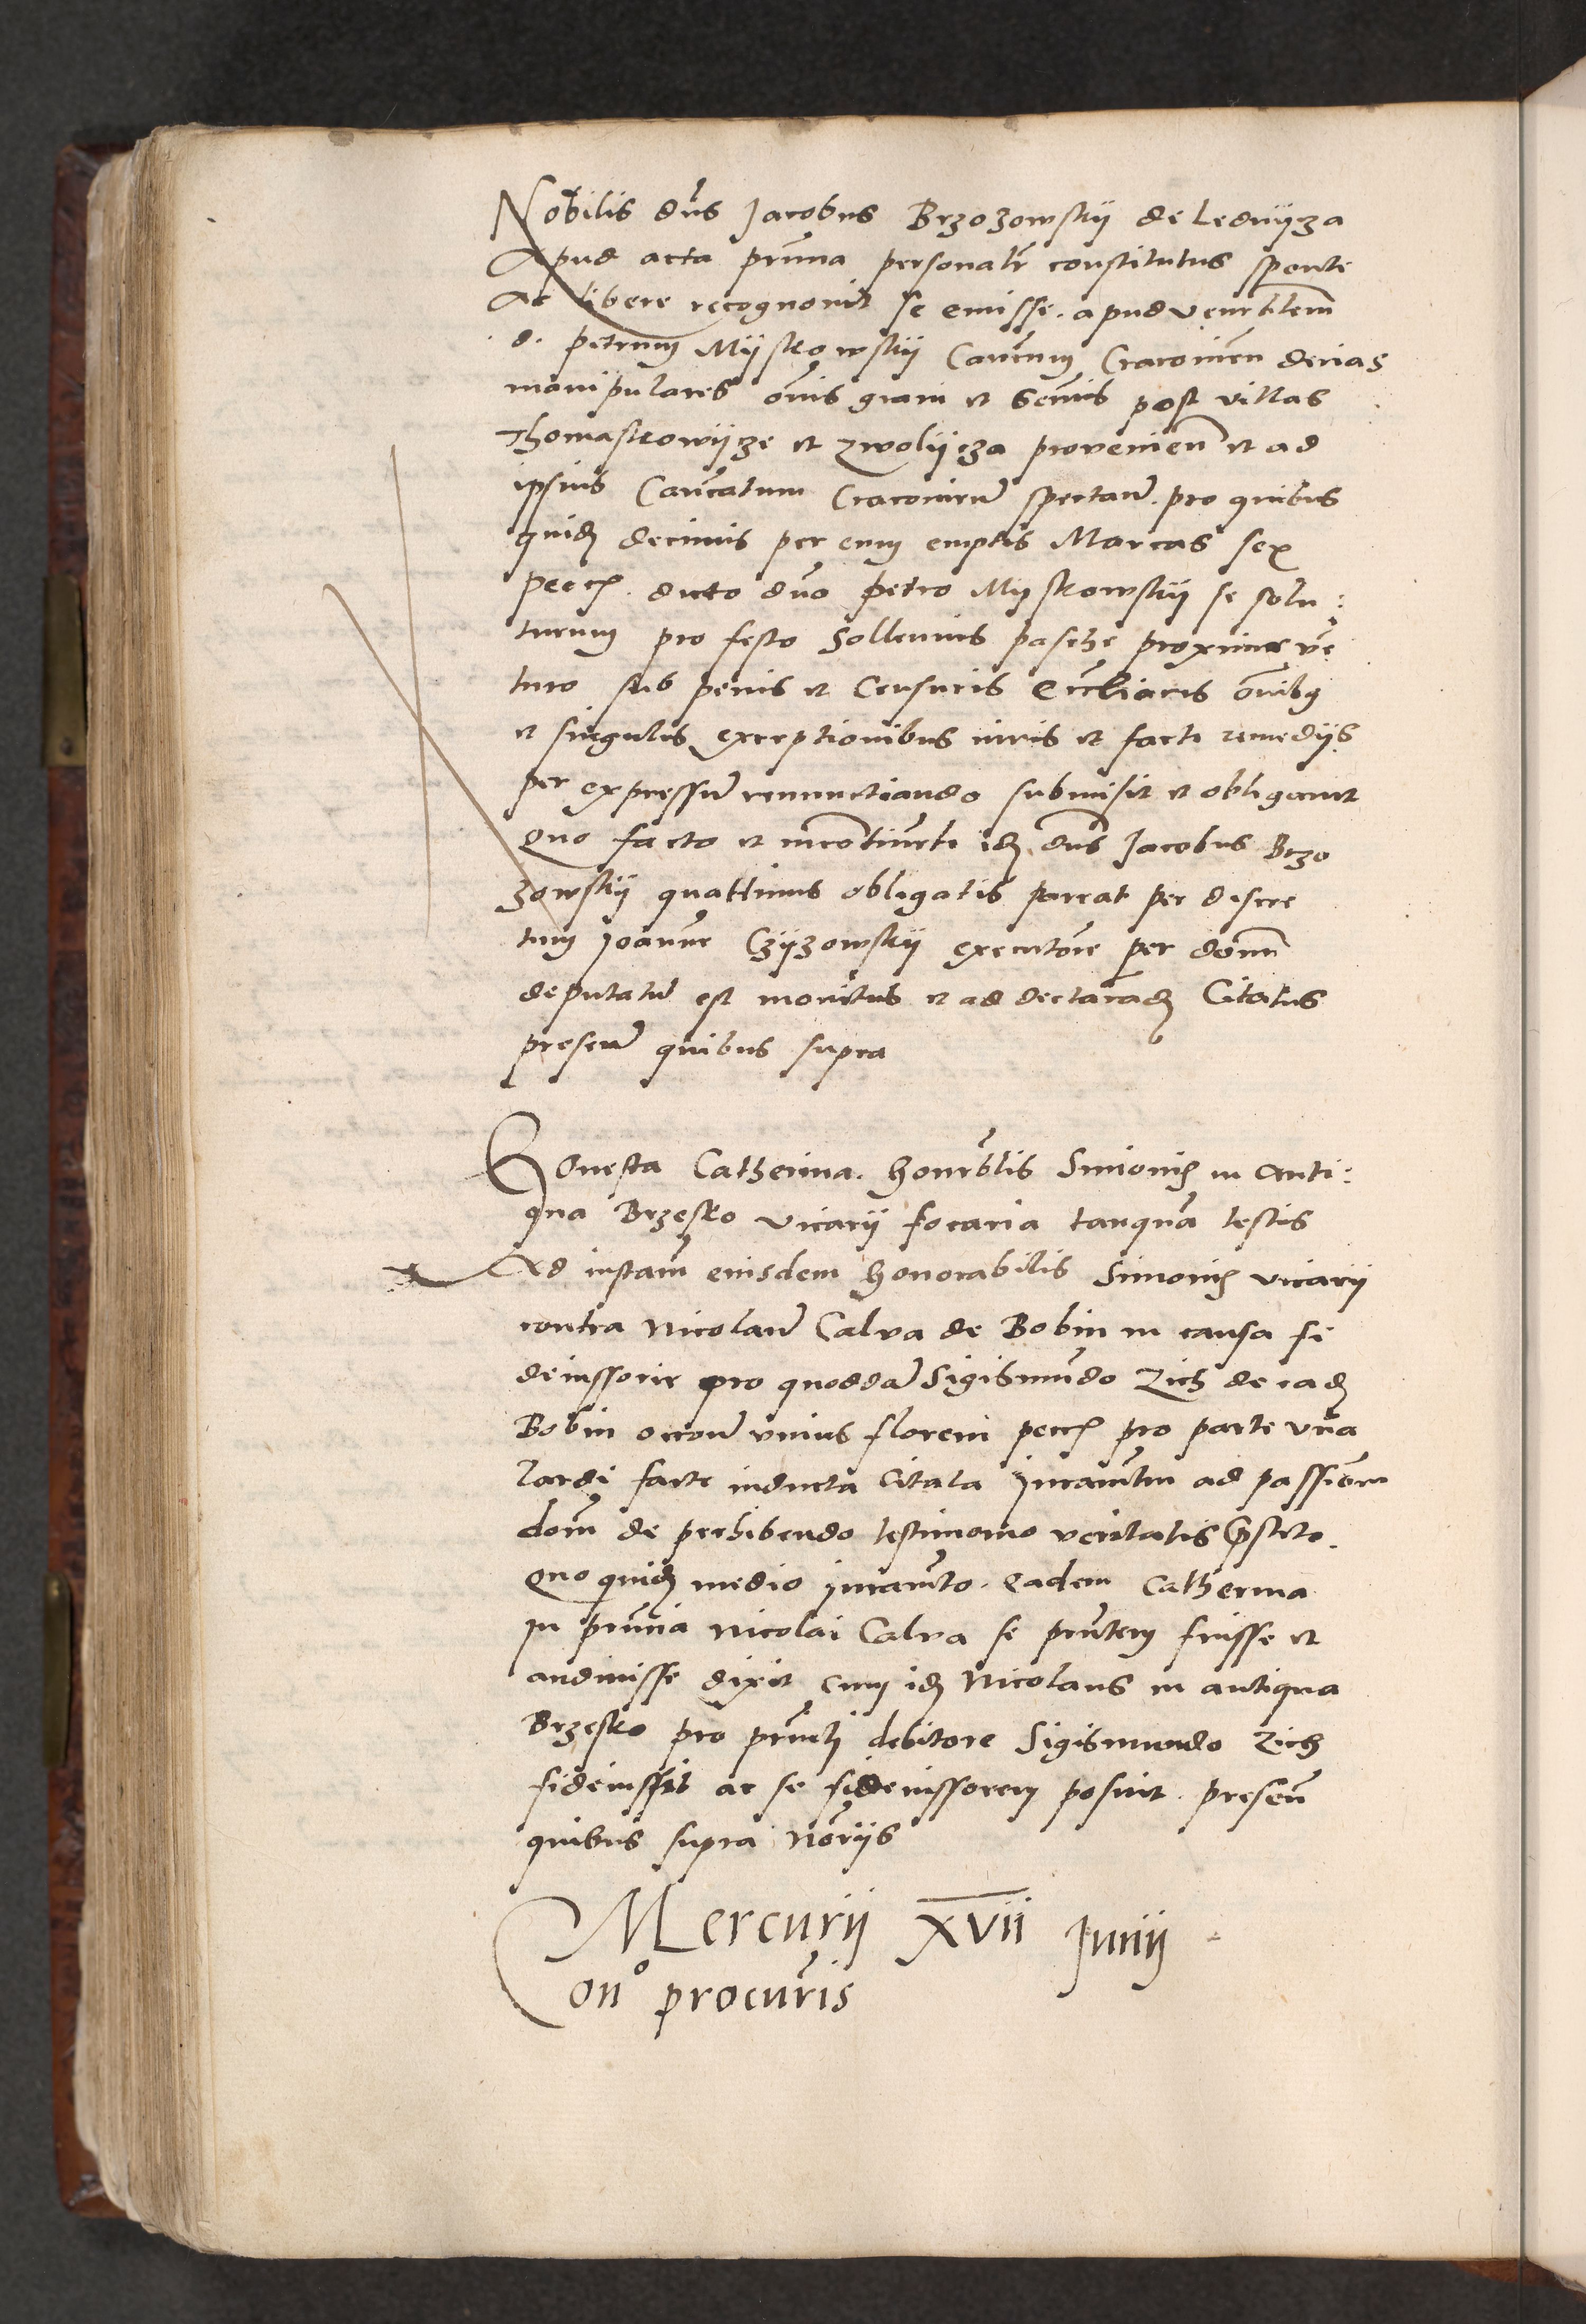 Nobilis dns Jacobus Brzozowskij de Lednijcza
Apud acta pnna personalr constitutus sponte
Ac libere recognovit se emisse apud venrblem
d. petrum Mijskowskij Cancum Cracovien decias
manipulares omnis grani et semis post villas
Thomaskowijcze et Zwolijcza provenien et ad
ipsius Cancatum Cracovien spectan. pro quibus
quid decimis per eum emptis Marcas sex
pecc. dicto dno petro Mijskowskij se solu:
turum pro festo sollennis pasche proxime ve
turo sub penis et Censuris Eccliacis omnibq
et singulis exceptionibus iuris et facti remedijs
per expressu renunctiando submisit et obligavit
Quo facto et incontinenti id dns Jacobus Brzo
zowskij quattinus obligatis pareat per discre
tum Joanne Czijzowskij executore per donu
deputatu est monitus et ad declarad Citatus
presen quibus supra
Honesta Catherina. honrblis Simonis in anti:
qua Brzesko vicarij focaria tanqua testis
Ad instam eiusdem honorabilis Simonis vicarij
contra Nicolaum Calva de Bobin in causa fi
deiussorie pro quodda Sigismundo Zich de ead
Bobin occon unius floreni pecc pro parte una
lardi facte inducta citata Juramtu ad passione
dom de perhibendo testimonio veritatis pstito.
Quo quid medio juramto. eadem Catherina
In pnncia Nicolai Calva se pntem fuisse et
audivisse dixit cum id Nicolaus in antiqua
Brzesko pro prncli debitore Sigismundo Zich
fideiussit ac se fideiussorem posuit. presen
quibus supra Norijs
Mercurij XVII Junij
Cono procuris